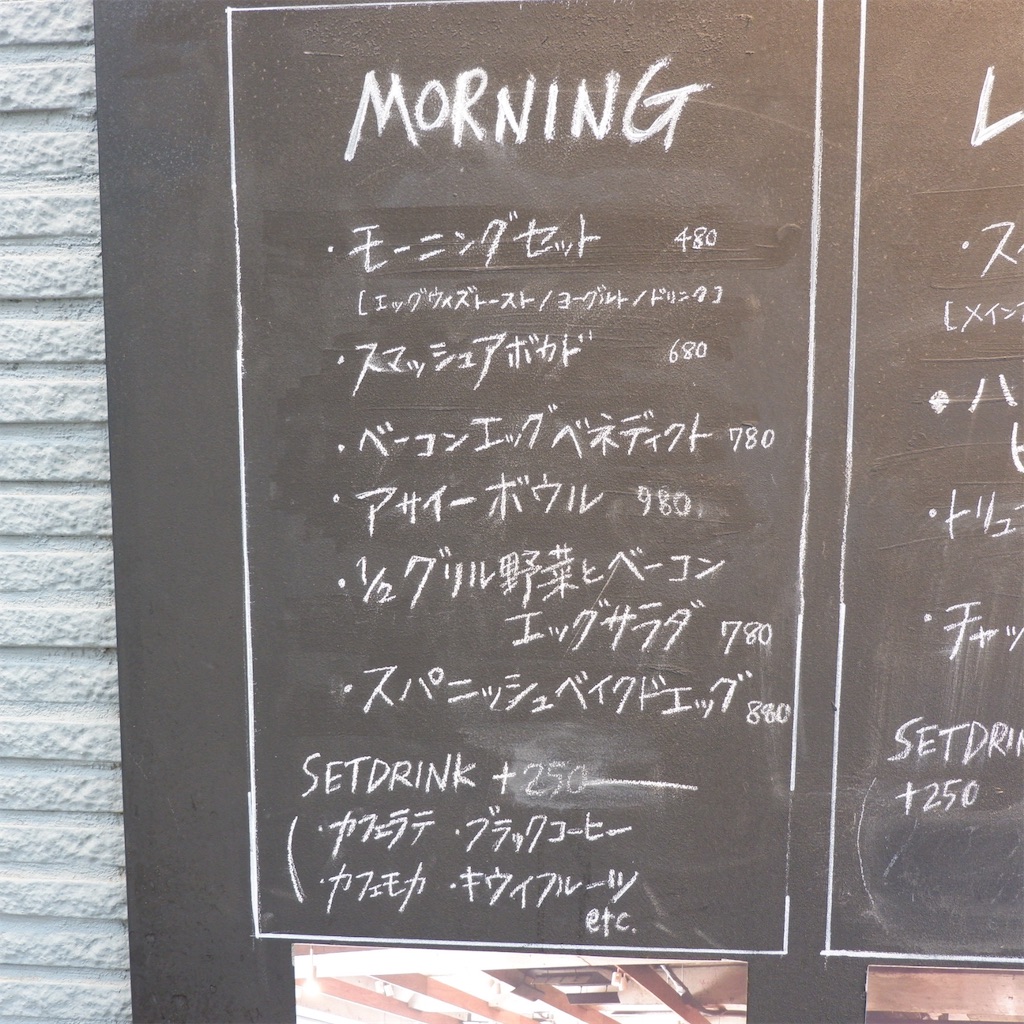 MORNING
・モーニングセット 480
[エッグウィズトースト/ヨーグルト/ドリンク]
・スマッシュアボカド 680
・ベーコンエッグベネディクト 780
・アサイーボウル 980
・1/2グリル野菜とベーコン
エッグサラダ 780
・スパニッシュベイクドエッグ 880
SETDRINK +250
・カフェラテ ・ブラックコーヒー
・カフェモカ ・キウイフルーツ
etc.
L
・ス
[メイン
・ハ
・トリュ
・チャッ
SETDRIN
+250